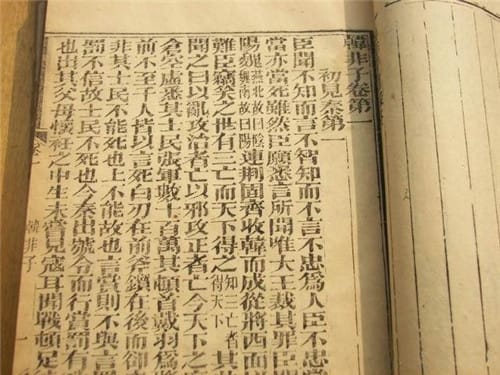 韓非子卷第
初見秦第一
臣聞不知而言不智知而不言不忠爲人臣不忠
當亦當死雖然臣願悉言所聞唯大王裁其罪臣聞
陽魏燕北故曰陰魏南故曰陽連荊固齊收韓而成從將西面
難臣竊笑之世有三亡而天下得之知三亡者得天下其
聞之曰以亂攻治者亡以邪攻正者亡今天下之
倉空虛悉其士民張軍數十百萬其頓首戴羽爲
前不至千人皆以言死白刃在前斧鑕在後而卻
非其士民不能死也上不能故也言賞則不與言
罰不信故士民不死也今秦出號令而行賞罰有
也出其父母懷衽之中生未嘗見寇耳聞戰頓足
韓非子